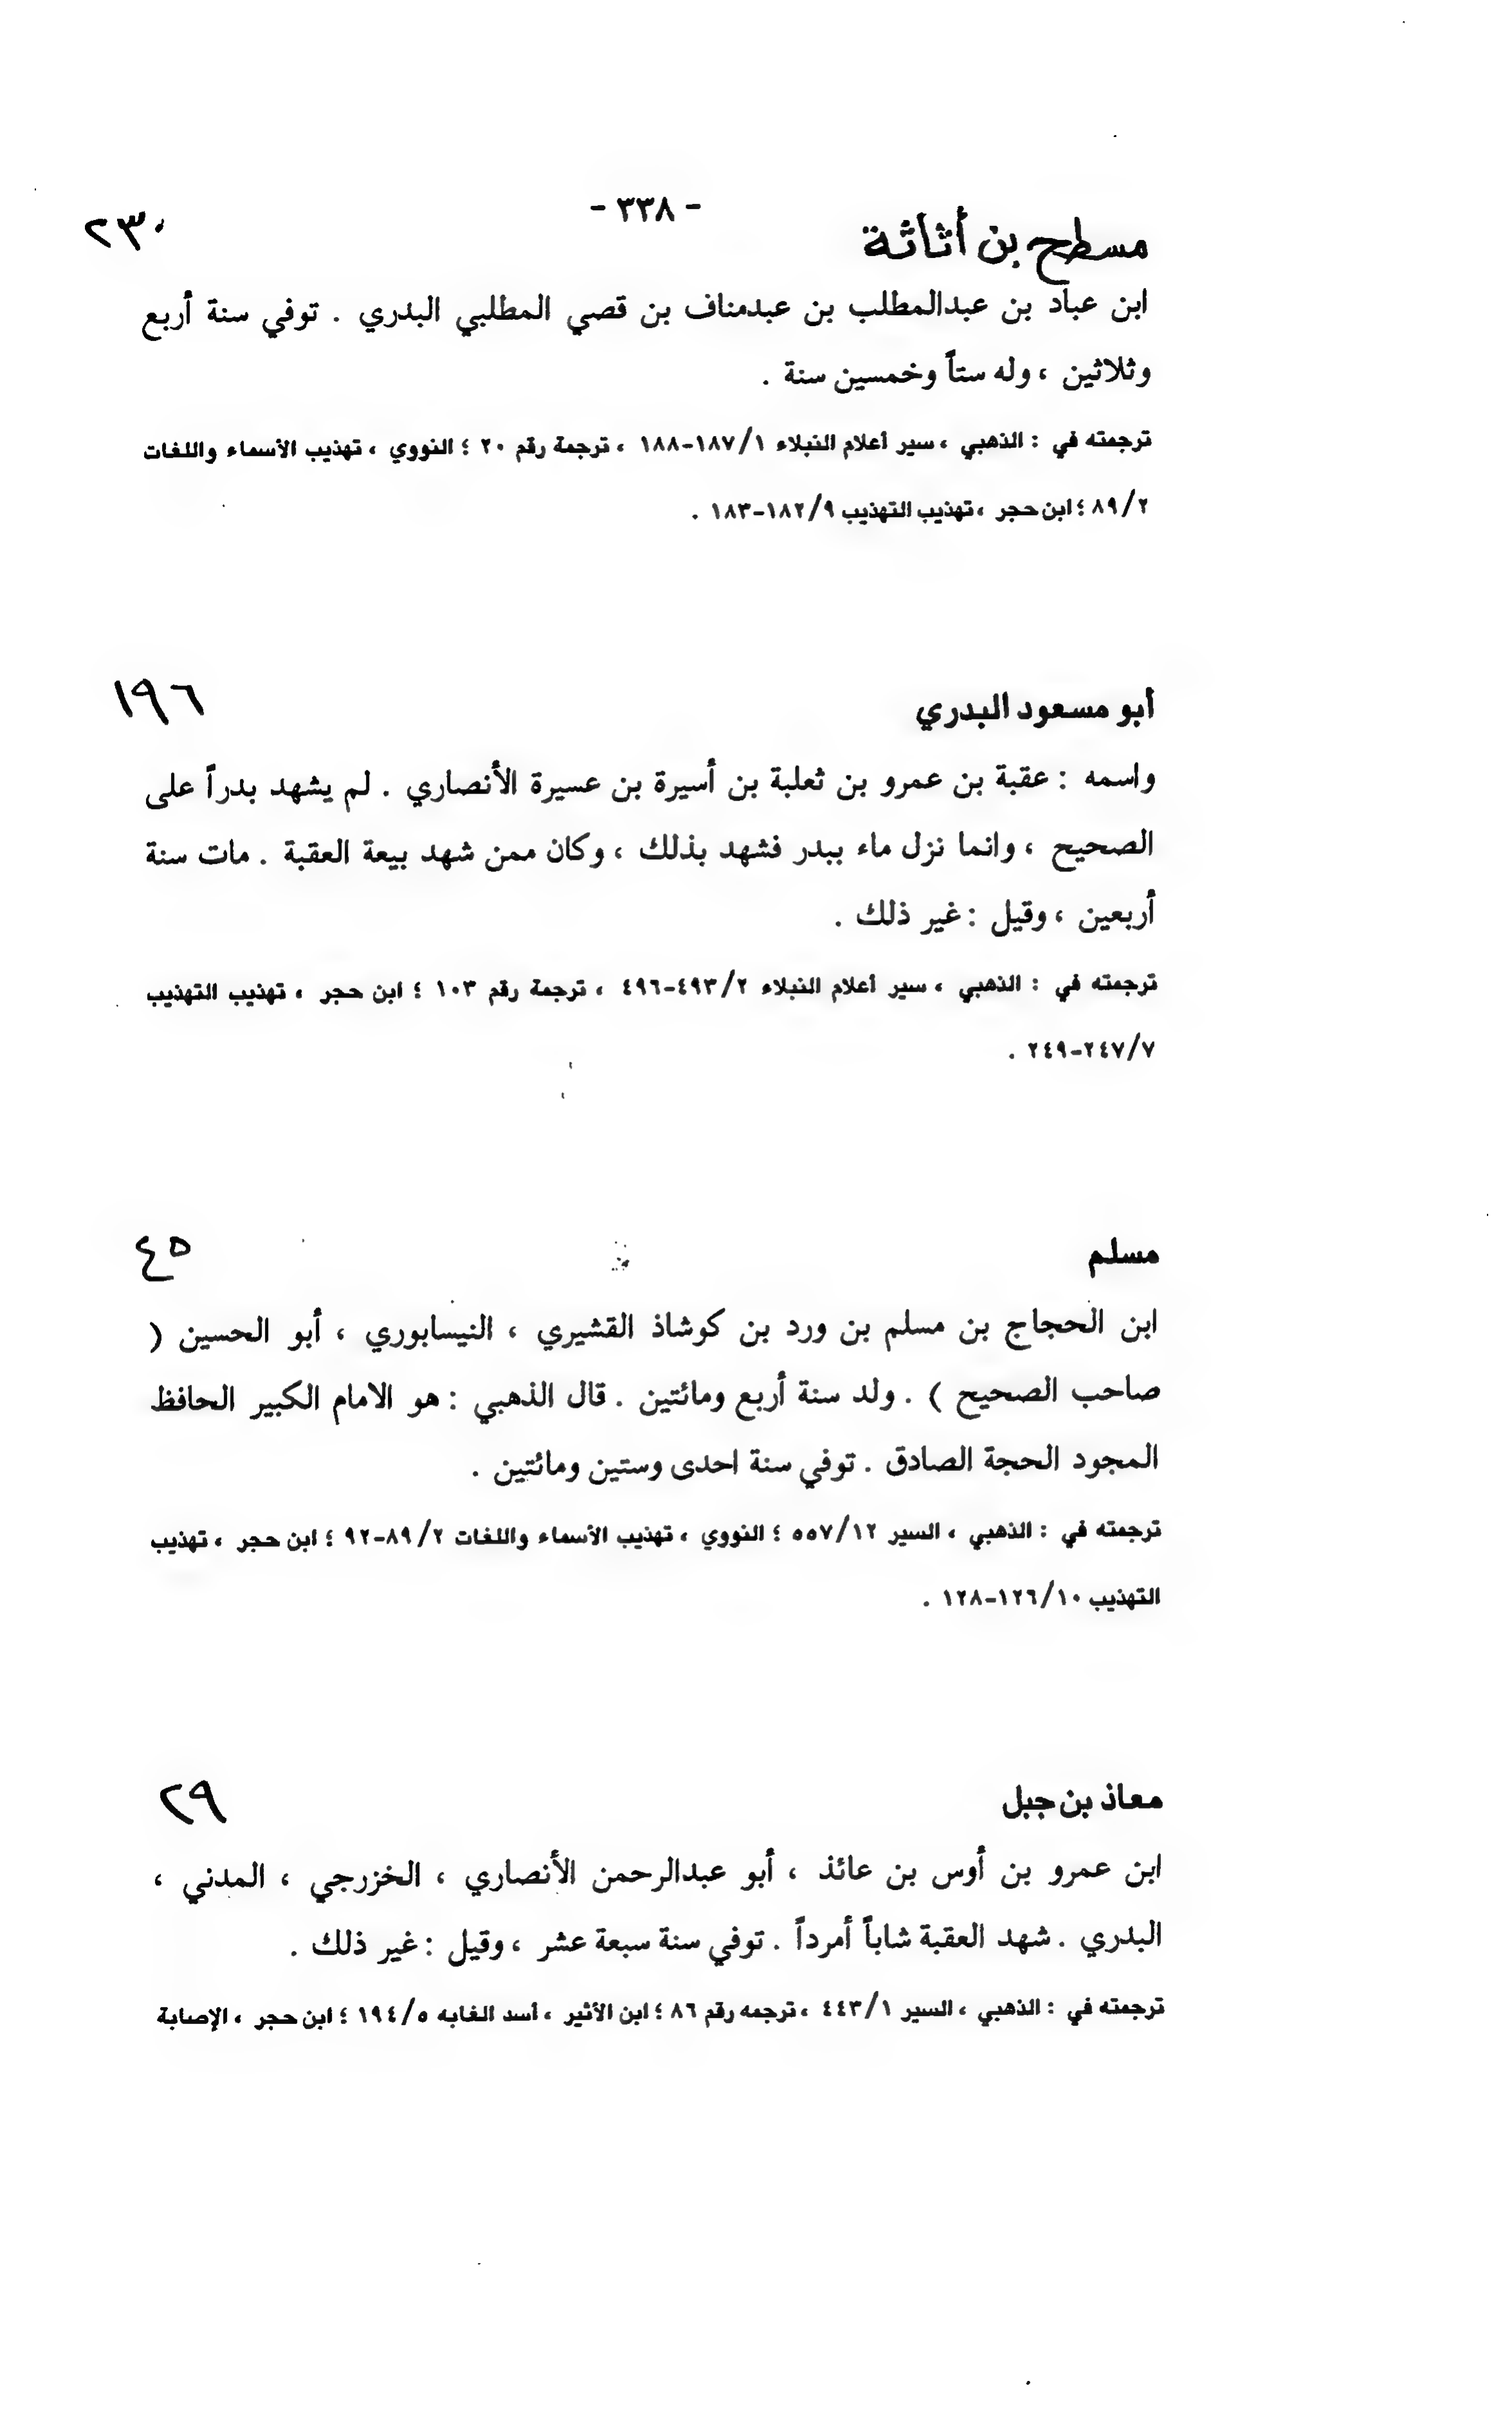 - ٣٣٨ -
مسطح بن أثاثة ٢٣٠
ابن عباد بن عبدالمطلب بن عبدمناف بن قصي المطلبي البدري . توفي سنة أربع
وثلاثين ، وله ستاً وخمسين سنة .
ترجمته في : الذهبي ، سير أعلام النبلاء ١٨٧/١-١٨٨ ، ترجمة رقم ٢٠ ؛ النووي ، تهذيب الأسماء واللغات
٨٩/٢ ؛ ابن حجر ، تهذيب التهذيب ١٨٢/٩-١٨٣ .
أبو مسعود البدري ١٩٦
واسمه : عقبة بن عمرو بن ثعلبة بن أسيرة بن عسيرة الأنصاري . لم يشهد بدراً على
الصحيح ، وانما نزل ماء ببدر فشهد بذلك ، وكان ممن شهد بيعة العقبة . مات سنة
أربعين ، وقيل : غير ذلك .
ترجمته في : الذهبي ، سير أعلام النبلاء ٤٩٣/٢-٤٩٦ ، ترجمة رقم ١٠٣ ؛ ابن حجر ، تهذيب التهذيب
٢٤٧/٧-٢٤٩ .
مسلم ٤٥
ابن الحجاج بن مسلم بن ورد بن كوشاذ القشيري ، النيسابوري ، أبو الحسين (
صاحب الصحيح ) . ولد سنة أربع ومائتين . قال الذهبي : هو الامام الكبير الحافظ
المجود الحجة الصادق . توفي سنة احدى وستين ومائتين .
ترجمته في : الذهبي ، السير ٥٥٧/١٢ ؛ النووي ، تهذيب الأسماء واللغات ٨٩/٢-٩٢ ؛ ابن حجر ، تهذيب
التهذيب ١٢٦/١٠-١٢٨ .
معاذ بن جبل ٢٩
ابن عمرو بن أوس بن عائذ ، أبو عبدالرحمن الأنصاري ، الخزرجي ، المدني ،
البدري . شهد العقبة شاباً أمرداً . توفي سنة سبعة عشر ، وقيل : غير ذلك .
ترجمته في : الذهبي ، السير ٤٤٣/١ ، ترجمه رقم ٨٦ ؛ ابن الأثير ، أسد الغابه ١٩٤/٥ ؛ ابن حجر ، الإصابة